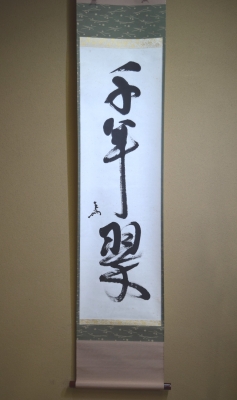 千年翠